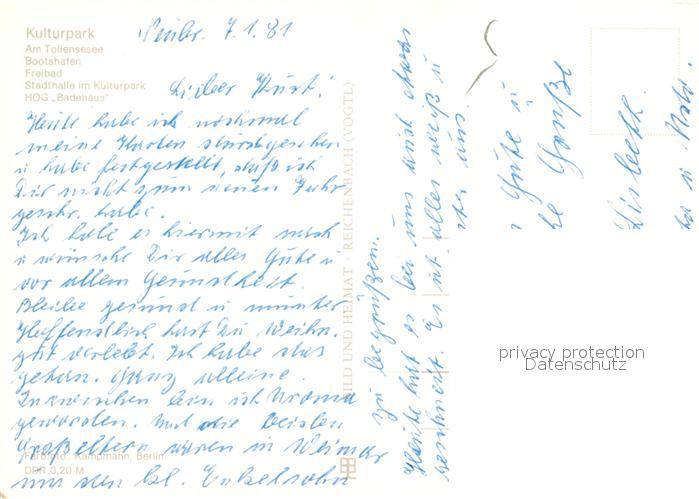 Kulturpark
Am Tollensesee
Bootshafen
Freibad
Stadthalle im Kulturpark
HOG „Badehaus“
Neubr. 7.1.81
Lieber Kurt!
Heute habe ich nochmal
meine Karten durchgesehen
u habe festgestellt, daß ich
Dir nicht zum neuen Jahr
geschr. habe.
Ich hole es hiermit nach
u wünsche Dir alles Gute u
vor allem Gesundheit.
Bleibe gesund u munter
Hoffendlich hast Du Weihn.
gut verlebt. Ich habe das
getan. Ganz alleine.
Inzwischen bin ich Uroma
geworden. Und die beiden
Großeltern waren in Weimar
um den kl. Enkelsohn
zu begrüßen.
Heute hat es bei uns auch etwas
geschneit. Es ist alles weiß u
uns.
Gute u
Grüße
Lisbeth.
u
Farbfoto: Kampmann, Berlin
DDR 0,20 M
BILD UND HEIMAT REICHENBACH (VOGTL)
privacy protection
Datenschutz